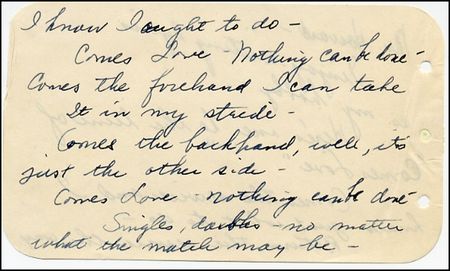 I know I ought to do -
Comes Love Nothing can be done -
Comes the forehand I can take
It in my stride -
Comes the backhand, well, it's
just the other side -
Comes Love nothing can be done -
Singles, doubles - no matter
what the match may be -